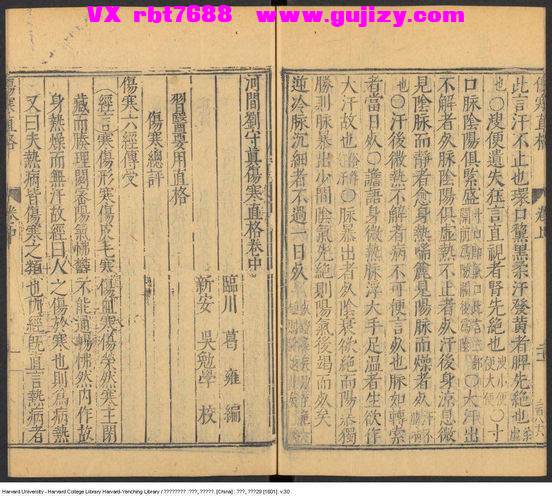 VX rbt7688  www.gujizy.com
此言汗不止也環口黧黑柔汗發黃者脾先絕也
也○溲便遺失狂言直視者腎先絕也
○寸
口脉陰陽俱緊盛
○大汗出
不解者死脉陰陽俱虛熱不止者死汗後身涼息微
見陰脉而靜者愈身熱喘麄見陽脉而燥者死
也○汗後微熱不解者病不可便言死也脉如轉索
者當日死○譫語身微熱脉浮大手足溫者生欲作
大汗故也
脉暴出者死陰衰欲絕而陽
獨
勝則脉暴出少間陰氣先絕則陽氣後竭而死矣
逆冷脉沉細者不過一日死
河間劉守眞傷寒直格卷中
臨川 葛雍 編
新安 吳勉學 校
習醫要用直格
傷寒總評
傷寒六經傳受
經言寒傷形寒傷皮毛寒傷血寒傷榮然寒主閉
藏而腠理閉密陽氣怫鬱不能通暢怫然內作故
身熱燥而無汗故經曰人之傷於寒也則爲病熱
又曰夫熱病皆傷寒之類也內經旣直言熱病者
傷寒直格
卷中
一
Harvard University - Harvard College Library Harvard-Yenching Library / ???????? : ???, ?????. [China] : ???, ???29 [1601]. v.30